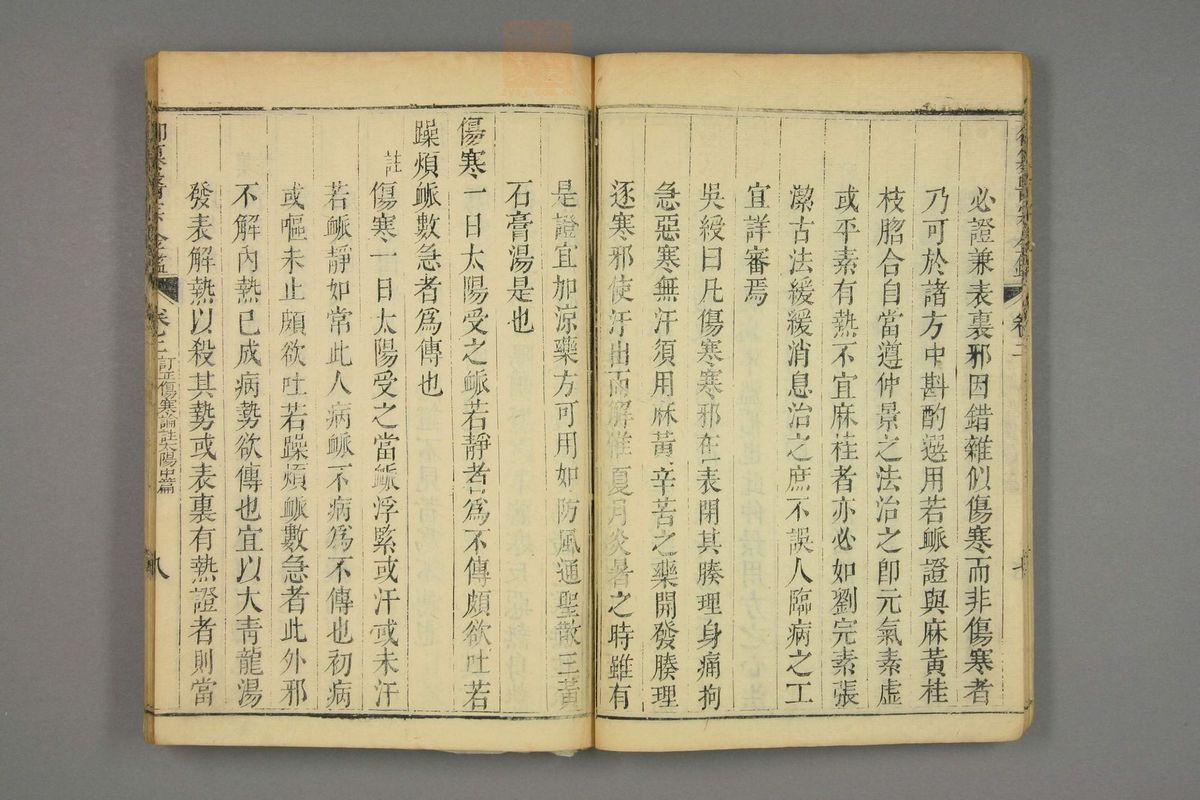 必證兼表裏邪因錯雜似傷寒而非傷寒者
乃可於諸方中斟酌選用若脈證與麻黃桂
枝脗合自當遵仲景之法治之即元氣素虛
或平素有熱不宜麻桂者亦必如劉完素張
潔古法緩緩消息治之庶不誤人臨病之工
宜詳審焉
吳綬曰凡傷寒寒邪在表閉其腠理身痛拘
急惡寒無汗須用麻黃辛苦之藥開發腠理
逐寒邪使汗出而解惟夏月炎暑之時雖有
是證宜加涼藥方可用如防風通聖散三黃
石膏湯是也
傷寒一日太陽受之脈若靜者爲不傳頗欲吐若
躁煩脈數急者爲傳也
註
傷寒一日太陽受之當脈浮緊或汗或未汗
若脈靜如常此人病脈不病爲不傳也初病
或嘔未止頗欲吐若躁煩脈數急者此外邪
不解內熱已成病勢欲傳也宜以大青龍湯
發表解熱以殺其勢或表裏有熱證者則當
卷二
訂正傷寒論註太陽中篇
八